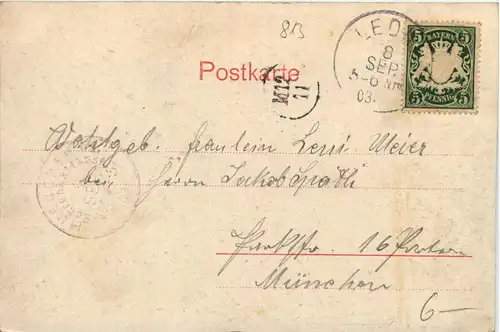 813
LEO
8
SEP
5-6 Nm
03.
BAYERN
5 5
PFENNIG
Postkarte
Wohlgeb. Fräulein Leni Meier
bei Herrn Jakob Späth
Parkstr. 16 Parterre
München
6—